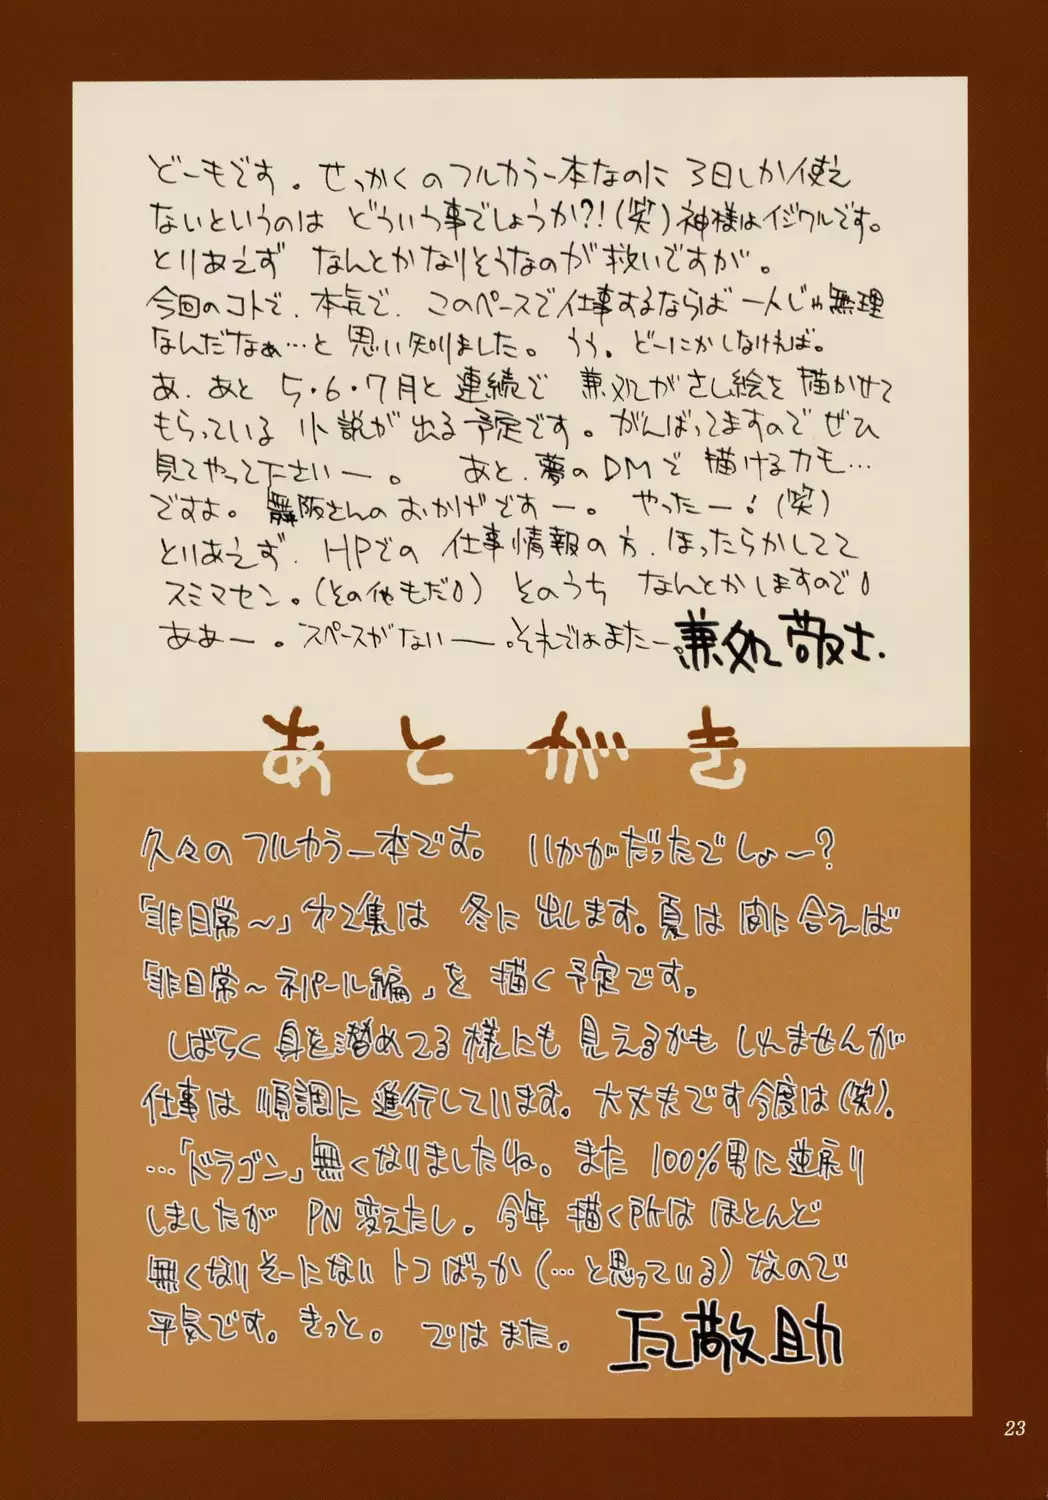 どーもです。せっかくのフルカラー本なのに 3日しか使え
ないというのは どういう事でしょうか?!(笑)神様はイジワルです。
とりあえず なんとかなりそうなのが救いですが。
今回のコトで、本気で、このペースで仕事するならば 一人じゃ無理
なんだなぁ…と 思い知りました。うう。どーにかしなければ。
あ、あと 5・6・7月と 連続で 兼処がさし絵を描かせて
もらっている 小説が出る予定です。がんばってますのでぜひ
見てやって下さいー。 あと、夢のDMで 描けるカモ…
ですよ。舞阪さんのおかげですー。 やったー!(笑)
とりあえず、HPでの 仕事情報の方、ほったらかしてて
スミマセン。(その他もだ) そのうち なんとかしますので
ああー。スペースがないー。それではまたー。兼処敬士.
あとがき
久々のフルカラー本です。 いかがだったでしょー?
「非日常〜」第2集は 冬に出します。夏は間に合えば
「非日常〜ネパール編」を 描く予定です。
しばらく身を潜めてる様にも見えるかもしれませんが
仕事は 順調に進行しています。大丈夫です今度は(笑)。
…「ドラゴン」無くなりましたね。また 100%男に逆戻り
しましたが PN変えたし。今年 描く所は ほとんど
無くなりそーにない トコばっか(…と思っている)なので
平気です。きっと。 ではまた。 瓦敬助
23